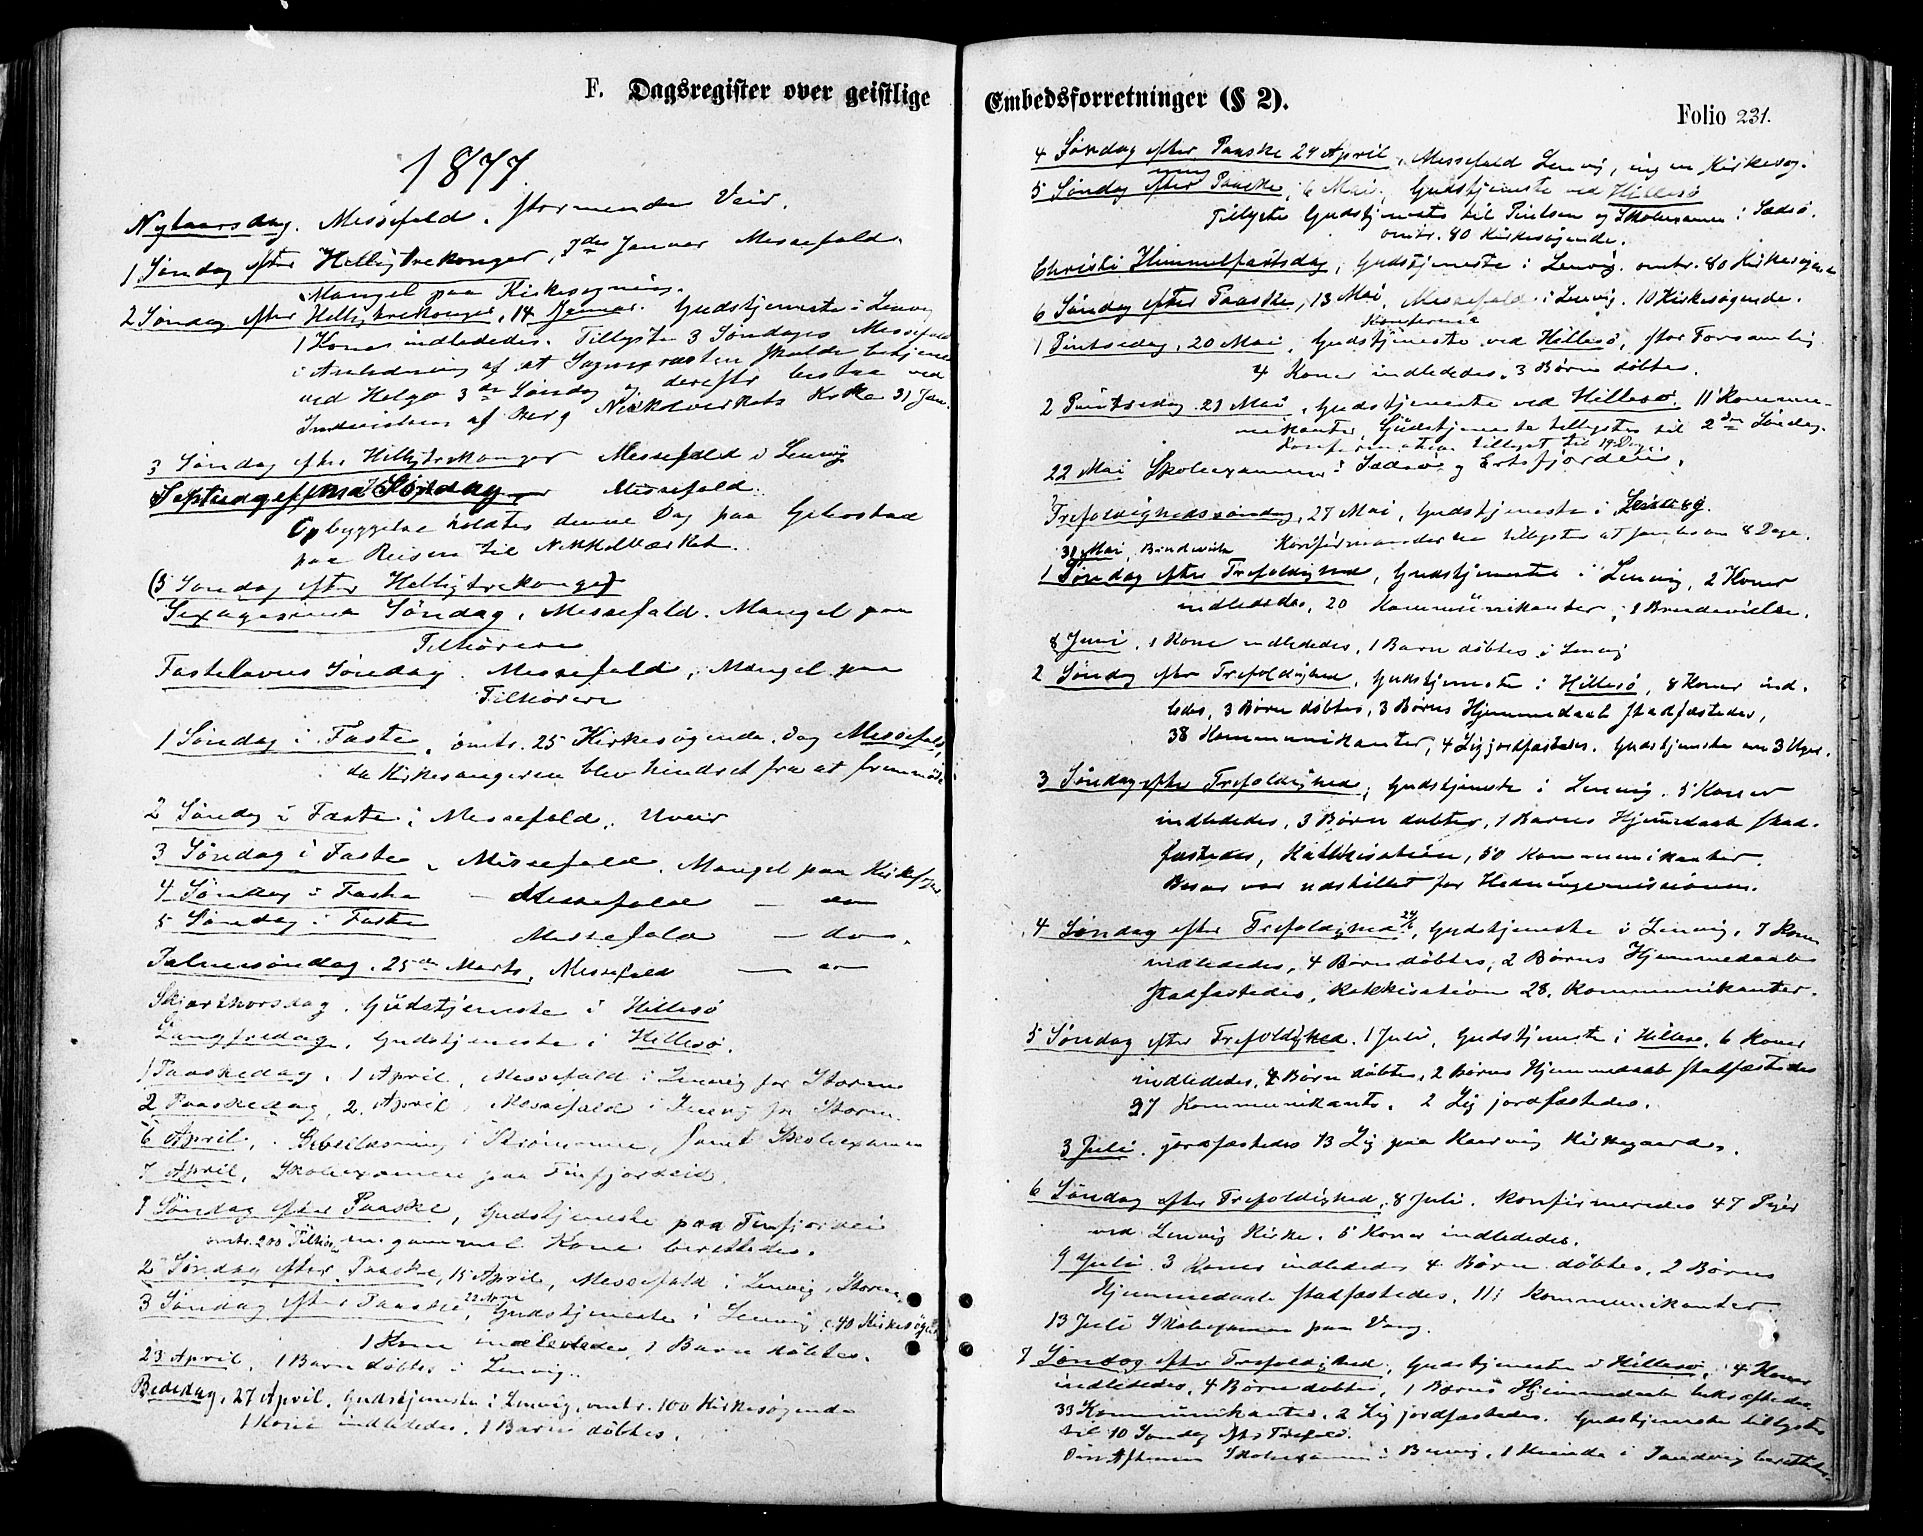 F. Dagsregister over geistlige
1877
Nytaarsdag. Messefald. stormende Veir.
1 Søndag efter Helligtrekonger, 7de Januar Messefald.
Mangel paa Kirkesøgning.
2 Søndag efter Helligtrekonger, 14 Januar. Gudstjeneste i Lenvig
1 Kone indlededes. Tillyste 3 Søndages Messefald
i Anledning af at Sognepræsten skulde betjene
ved Helgø 3de Søndag og derefter bestaa ved
Indvielsen af Berg Nikkelværkets Kirke 31 Jan.
3 Søndag efter Helligtrekonger Messefald i Lenvig
Septuagesima Søndag Messefald.
Opbyggelse holdtes denne Dag paa Gibostad
paa Reisen til Nikkelværket.
(5 Søndag efter Helligtrekonger)
Sexagesima Søndag, Messefald. Mangel paa
Tilhørere
Fastelavns Søndag. Messefald, Mangel paa
Tilhørere
1 Søndag i Faste, omtr. 25 Kirkesøgende, dog Messefald,
da Kirkesangeren blev hindret fra at fremmøde
2 Søndag i Faste, Messefald, Uveir
3 Søndag i Faste, Messefald. Mangel paa Kirkefolk
4 Søndag i Faste - Messefald - do
5 Søndag i Faste Messefald - do.
Palmesøndag, 25de Marts, Messefald - do
Skjærthorsdag. Gudstjeneste i Hillesø
Langfredag, Gudstjeneste i Hillesø.
1 Paaskedag, 1 April, Messefald i Lenvig for Storm
2 Paaskedag, 2 April, Messefald i Lenvig for Storm
6 April, Bibellæsning i Strømmen, samt Skoleexamen
7 April, Skoleexamen paa Finfjordeid.
1 Søndag efter Paaske, Gudstjeneste paa Finfjordei
omtr. 200 Tilhør. en gammel Kone berettedes.
2 Søndag efter Paaske, 15 April, Messefald i Lenvig, Storm.
3 Søndag efter Paaske, 22 April Gudstjeneste i Lenvig, c. 40 Kirkesøgende
1 Kone indlededes, 1 Barn døbtes.
23 April, 1 Barn døbtes i Lenvig.
Bededag, 27 April, Gudstjeneste i Lenvig, omtr. 100 Kirkesøgende
1 Kone indlededes, 1 Barn døbtes.
Embedsforretninger (§ 2).
Folio 231.
4 Søndag efter Paaske 29 April, Messefald Lenvig, ingen Kirkesøg.
5 Søndag efter Paaske, 6 Mai, Gudstjeneste ved Hillesø
Tillyste Gudstjeneste til Pintsen og Skoleexamen i Sædsø.
omtr. 80 Kirkesøgende.
Christi Himmelfartsdag, Gudstjeneste i Lenvig. omtr. 80 Kirkesøgende
6 Søndag efter Paaske, 13 Mai, Messefald i Lenvig. 10 Kirkesøgende.
1 Pintsedag, 20 Mai, Gudstjeneste ved Hillesø, stor Forsamling
4 Koner indlededes, 3 Børn døbtes.
2 Pintsedag 21 Mai, Gudstjeneste ved Hillesø. 11 Kommu-
nikanter, Gudstjeneste tillystes til 2den Søndag.
22 Mai Skoleexamen i Sædsø og Ersfjorden.
Trefoldighedssøndag, 27 Mai, Gudstjeneste i Lenvig.
31 Mai Brudevielse Konfirmanderne tillystes at samles om 8 Dage.
1 Søndag efter Trefoldighed, Gudstjeneste i Lenvig, 2 Koner
indlededes, 20 Kommunikanter, 1 Brudevielse.
8 Juni, 1 Kone indlededes, 1 Barn døbtes i Lenvig
2 Søndag efter Trefoldighed, Gudstjeneste i Hillesø, 8 Koner ind-
ledes, 3 Børn døbtes, 3 Børns Hjemmedaab stadfæstedes,
38 Kommunikanter, 4 Lig jordfæstedes. Gudstjeneste om 3 Uger.
3 Søndag efter Trefoldighed, Gudstjeneste i Lenvig. 5 Koner
indlededes, 3 Børn døbtes, 1 Barns Hjemmedaab stad-
fæstedes, Katekisation, 50 Kommunikanter.
Bøsse var udstillet for Hedningemissionen.
4 Søndag efter Trefoldighed 24/6, Gudstjeneste i Lenvig, 7 Koner
indlededes, 4 Børn døbtes, 2 Børns Hjemmedaab
stadfæstedes, Katekisation 28. Kommunikanter.
5 Søndag efter Trefoldighed. 1 Juli, Gudstjeneste i Hillesø, 6 Koner
indlededes, 4 Børn døbtes, 2 Børns Hjemmedaab stadfæstedes
37 Kommunikant. 2 Lig jordfæstedes.
3 Juli. jordfæstedes 13 Lig paa Kirkegaarden.
6 Søndag efter Trefoldighed, 8 Juli. konfirmeredes 47 Piger
ved Lenvig Kirke. 5 Koner indlededes.
9 Juli. 3 Koner indlededes 4 Børn døbtes, 2 Børns
Hjemmedaab stadfæstedes, 111 Kommunikanter
13 Juli Skoleexamen paa Vang.
7 Søndag efter Trefoldighed, Gudstjeneste i Hillesø, 4 Koner
indlededes, 4 Børn døbtes, 1 Barns Hjemmedaab bekræftedes,
33 Kommunikanter, 2 Lig jordfæstedes. Gudstjeneste tillystes
til 10 Søndag eftr Trefold.
Skoleexamen i 1 Kvinde i Sandvig berettedes.